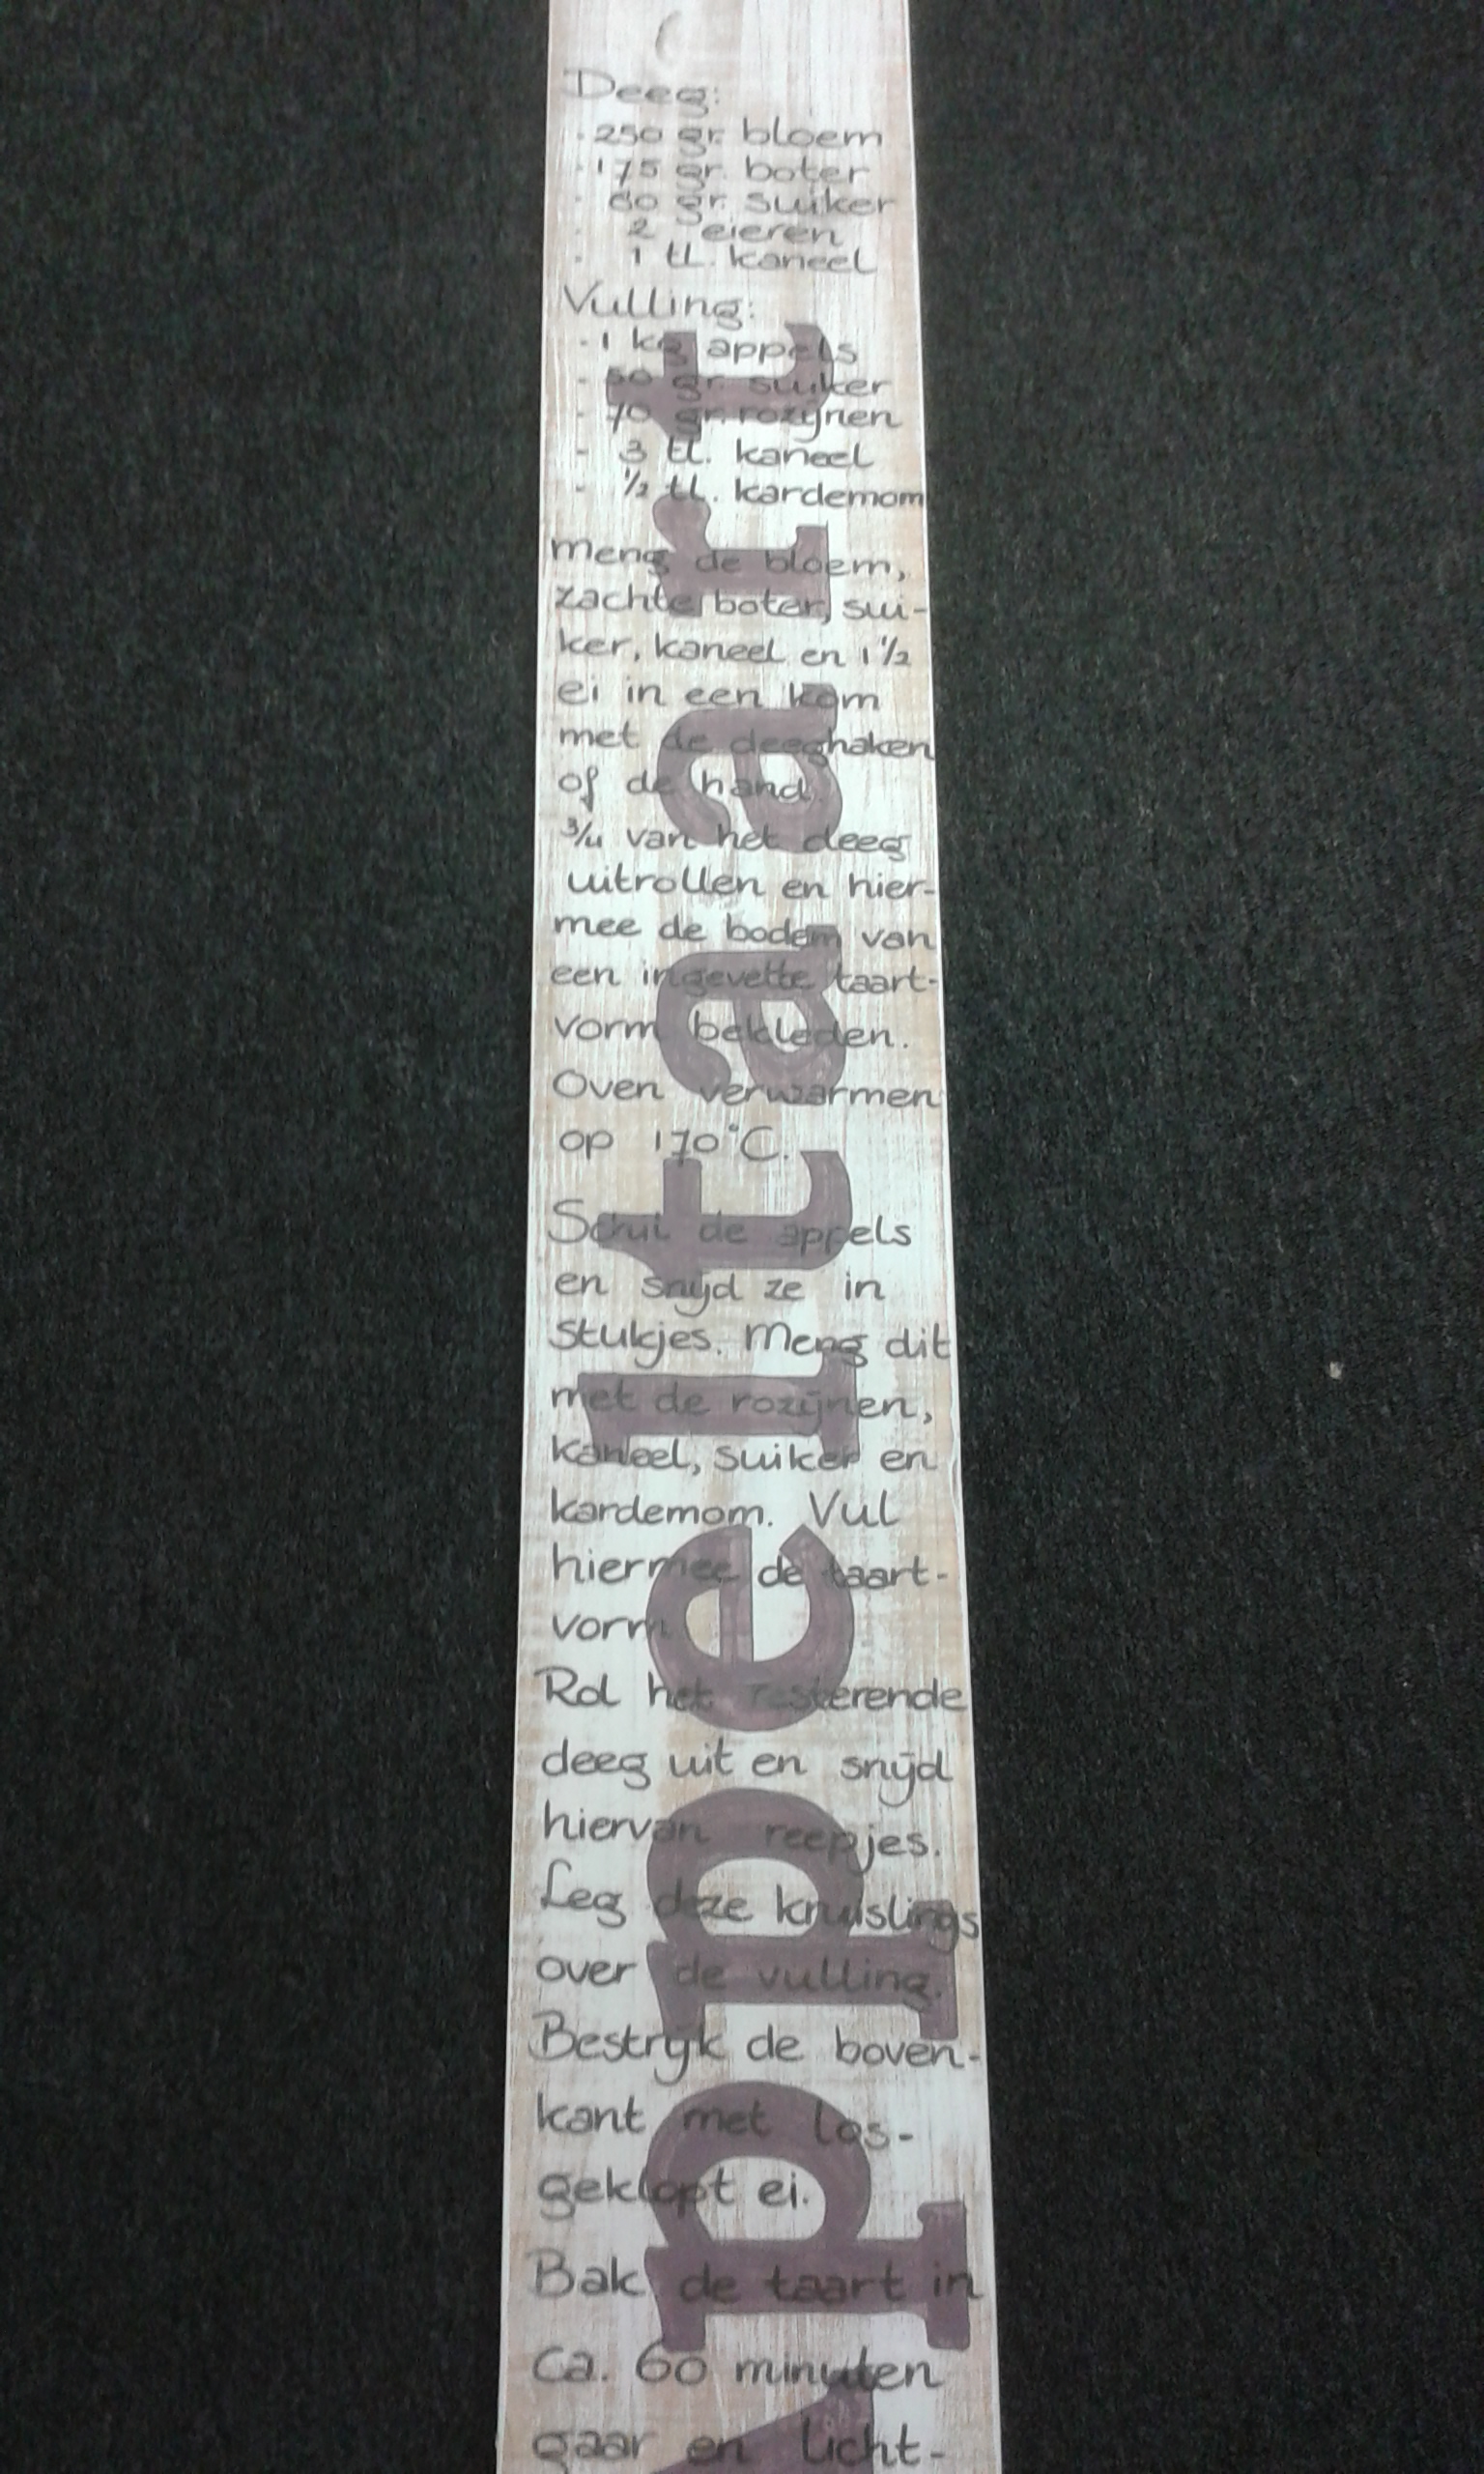 Deeg:
- 250 gr. bloem
- 175 gr. boter
- 80 gr. suiker
- 2 eieren
- 1 tl. kaneel
Vulling:
- 1 kg appels
- 50 gr. suiker
- 70 gr. rozijnen
- 3 tl. kaneel
- ½ tl. kardemom
Meng de bloem,
zachte boter, sui-
ker, kaneel en 1½
ei in een kom
met de deeghaken
of de hand.
¾ van het deeg
uitrollen en hier-
mee de bodem van
een ingevette taart-
vorm bekleden.
Oven verwarmen
op 170°C.
Schil de appels
en snijd ze in
stukjes. Meng dit
met de rozijnen,
kaneel, suiker en
kardemom. Vul
hiermee de taart-
vorm.
Rol het resterende
deeg uit en snijd
hiervan reepjes.
Leg deze kruislings
over de vulling.
Bestrijk de boven-
kant met los-
geklopt ei.
Bak de taart in
ca. 60 minuten
gaar en licht-
Appeltaart